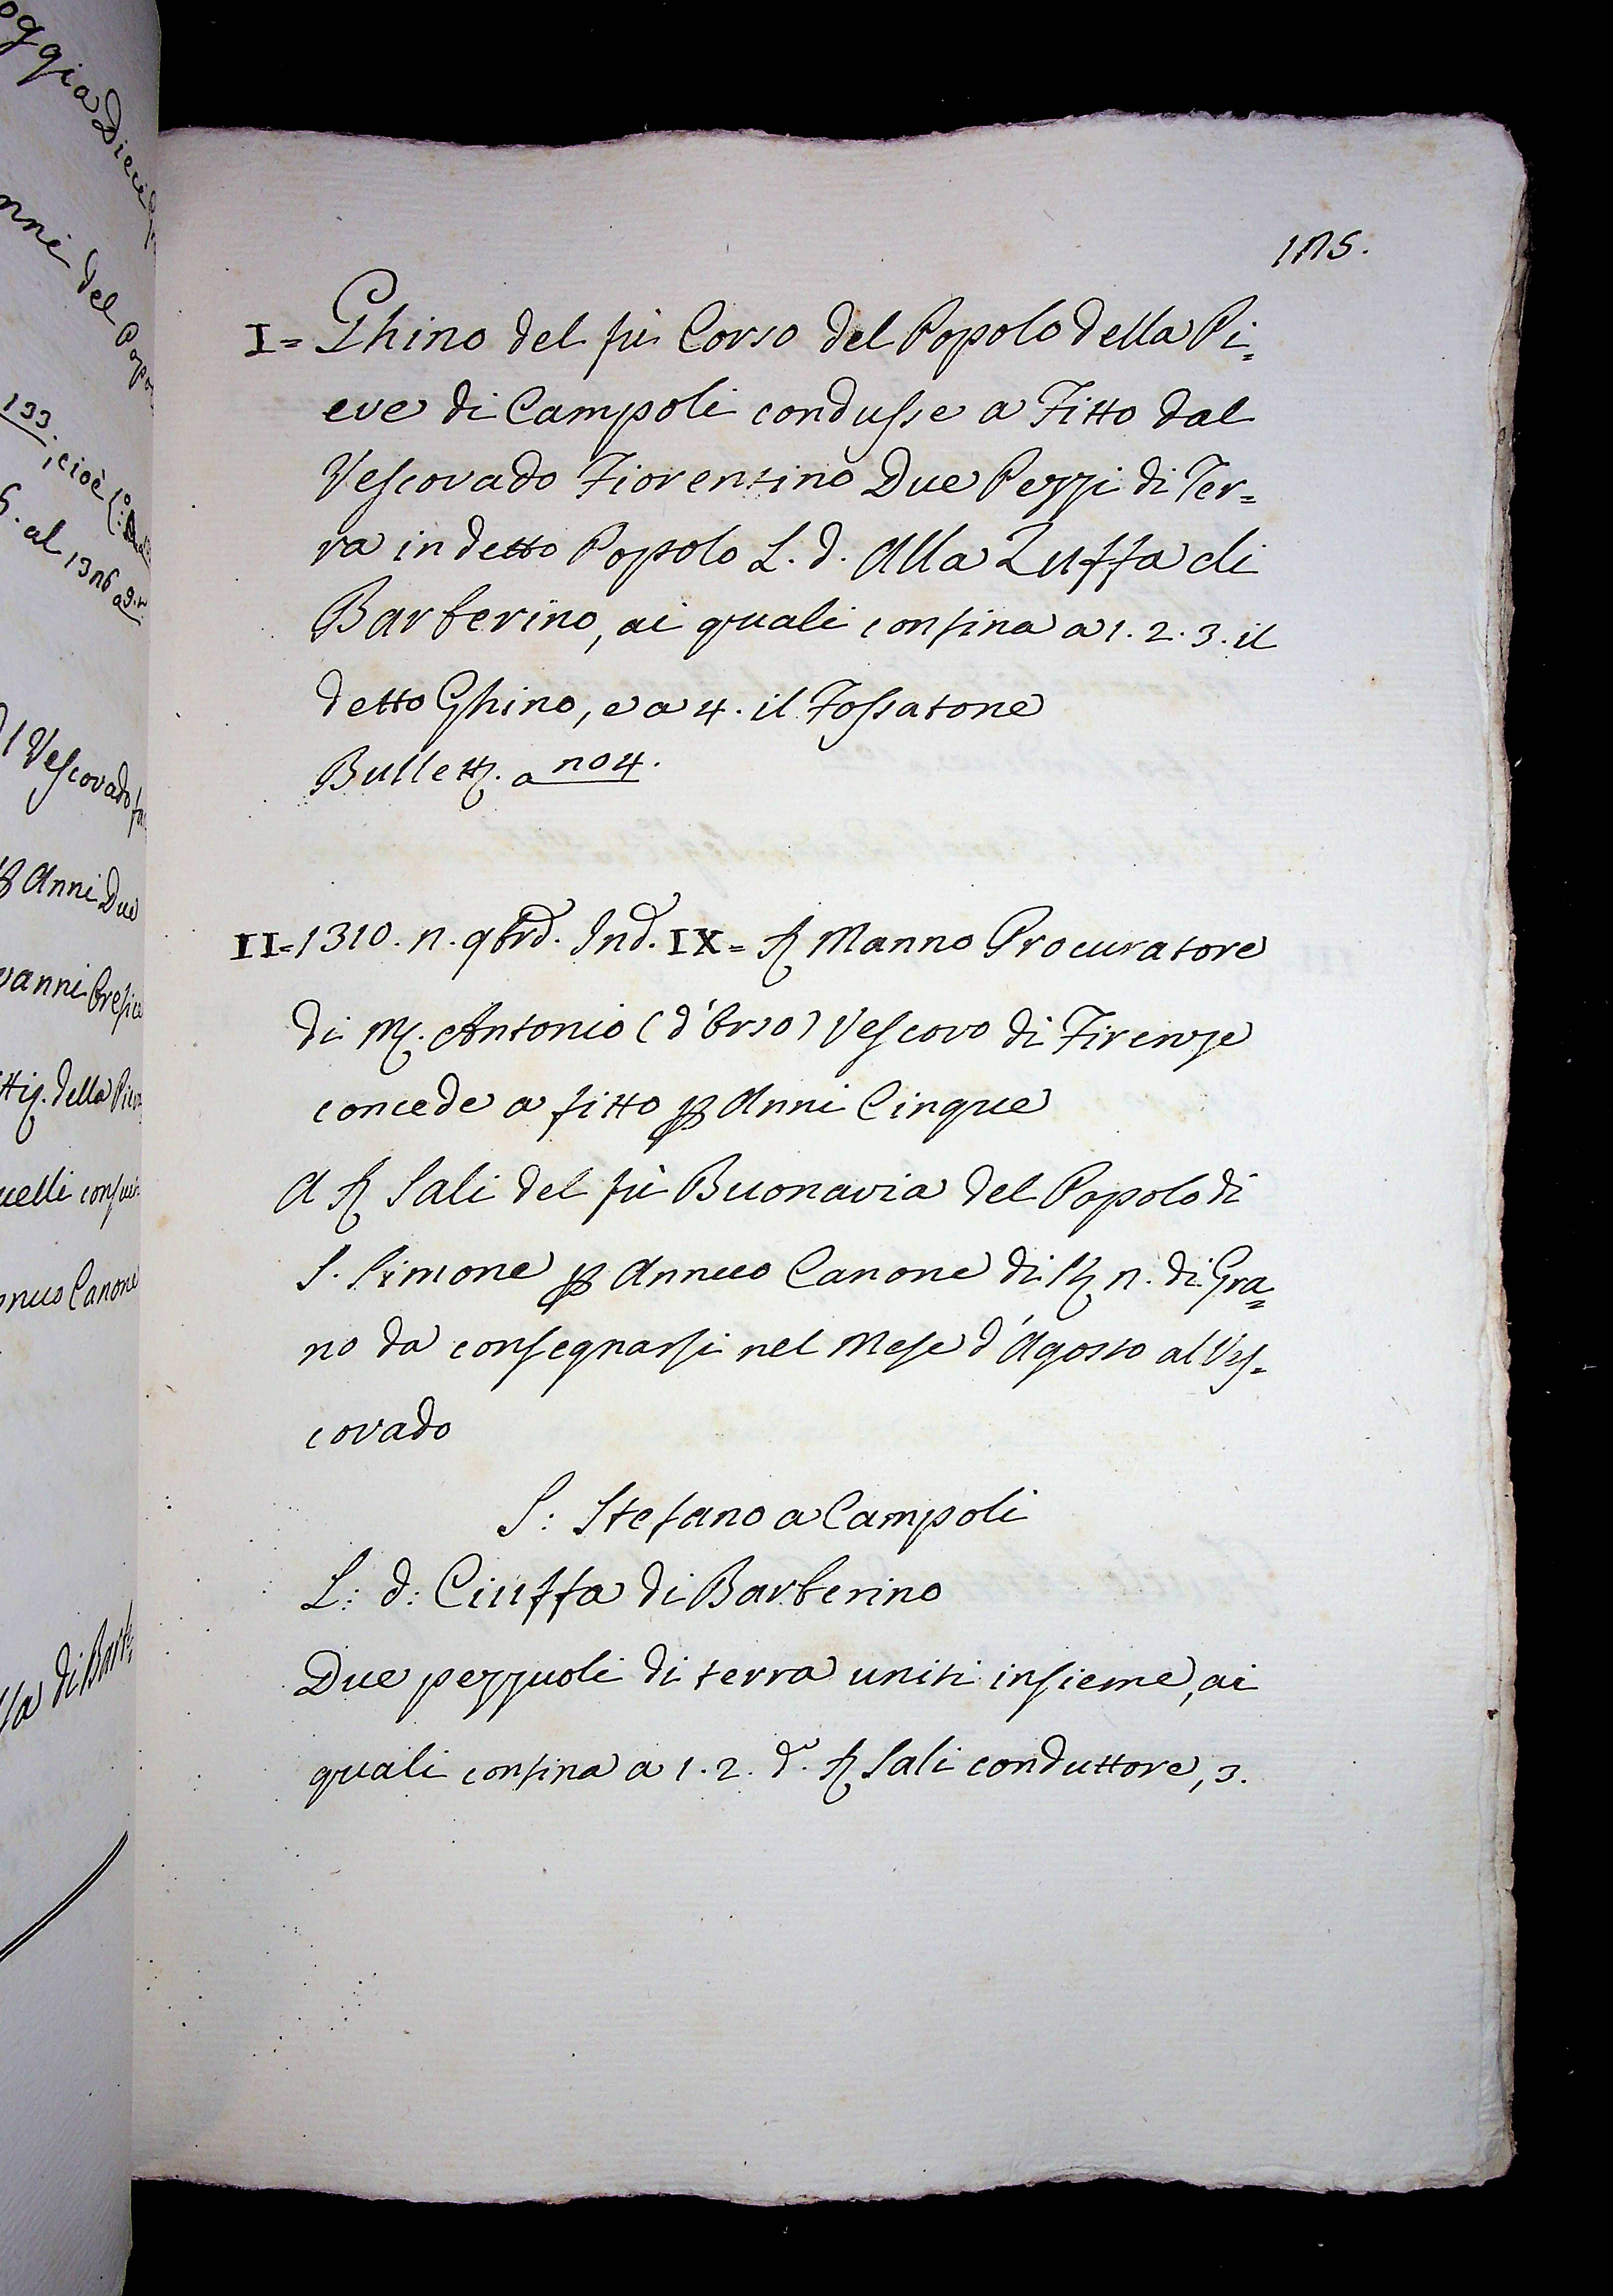 oggia Dieci
nni del Popo
193; cioè
5. al 1376
Vescovado
Anni Due
vanni
della
nuo Canone
di Barb
175.
I = Ghino del fù Corso del Popolo della Pi=
eve di Campoli condusse a Fitto dal
Vescovado Fiorentino Due Pezzi di Ter=
ra in detto Popolo L. d. Alla Zuffa di
Barberino, ai quali confina a 1. 2. 3. il
detto Ghino, e a 4. il Fossatone
Bullett. a 704.
II = 1310. 7. 9brd. Ind. IX = Sr Manno Procuratore
di Mr. Antonio (d'Orso) Vescovo di Firenze
concede a fitto p Anni Cinque
A Sr Sali del fù Buonavia del Popolo di
S. Simone p Annuo Canone di St 7. di Gra=
no da consegnarsi nel Mese d'Agosto al Ves=
covado
S: Stefano a Campoli
L: d: Ciuffa di Barberino
Due pezzuoli di terra uniti insieme, ai
quali confina a 1. 2. do. Sr Sali conduttore, 3.